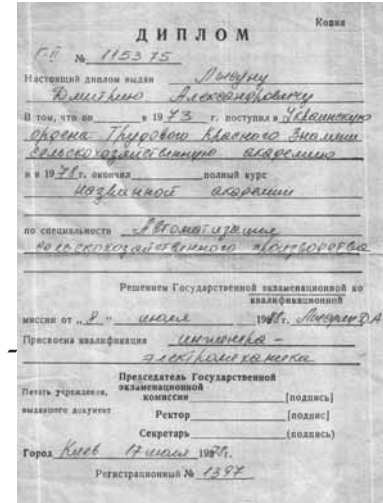 Копия
ДИПЛОМ
Г-II № 115375
Настоящий диплом выдан
Дмитрию Александровичу
В том, что он в 1973 г. поступил в Украинскую
ордена Трудового Красного Знамени
сельскохозяйственную академию
и в 1978 г. окончил полный курс
названной академии
по специальности Автоматизация
сельскохозяйственного производства
Решением Государственной экзаменационной ко
квалификационной
миссии от „8" июля 1978г.
Присвоена квалификация инженера-
электромеханика
Председатель Государственной
экзаменационной
комиссии [подпись]
Печать учреждения,
выдавшего документ
Ректор [подпис]
Секретарь (подпись)
Город Киев 17 июля 1978г.
Регистрационный № 1397